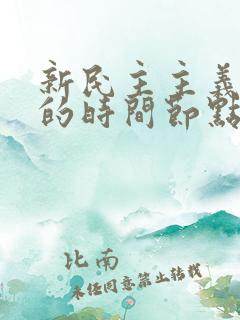 新民主主義
的時間節點
比南
未经同意禁止转载